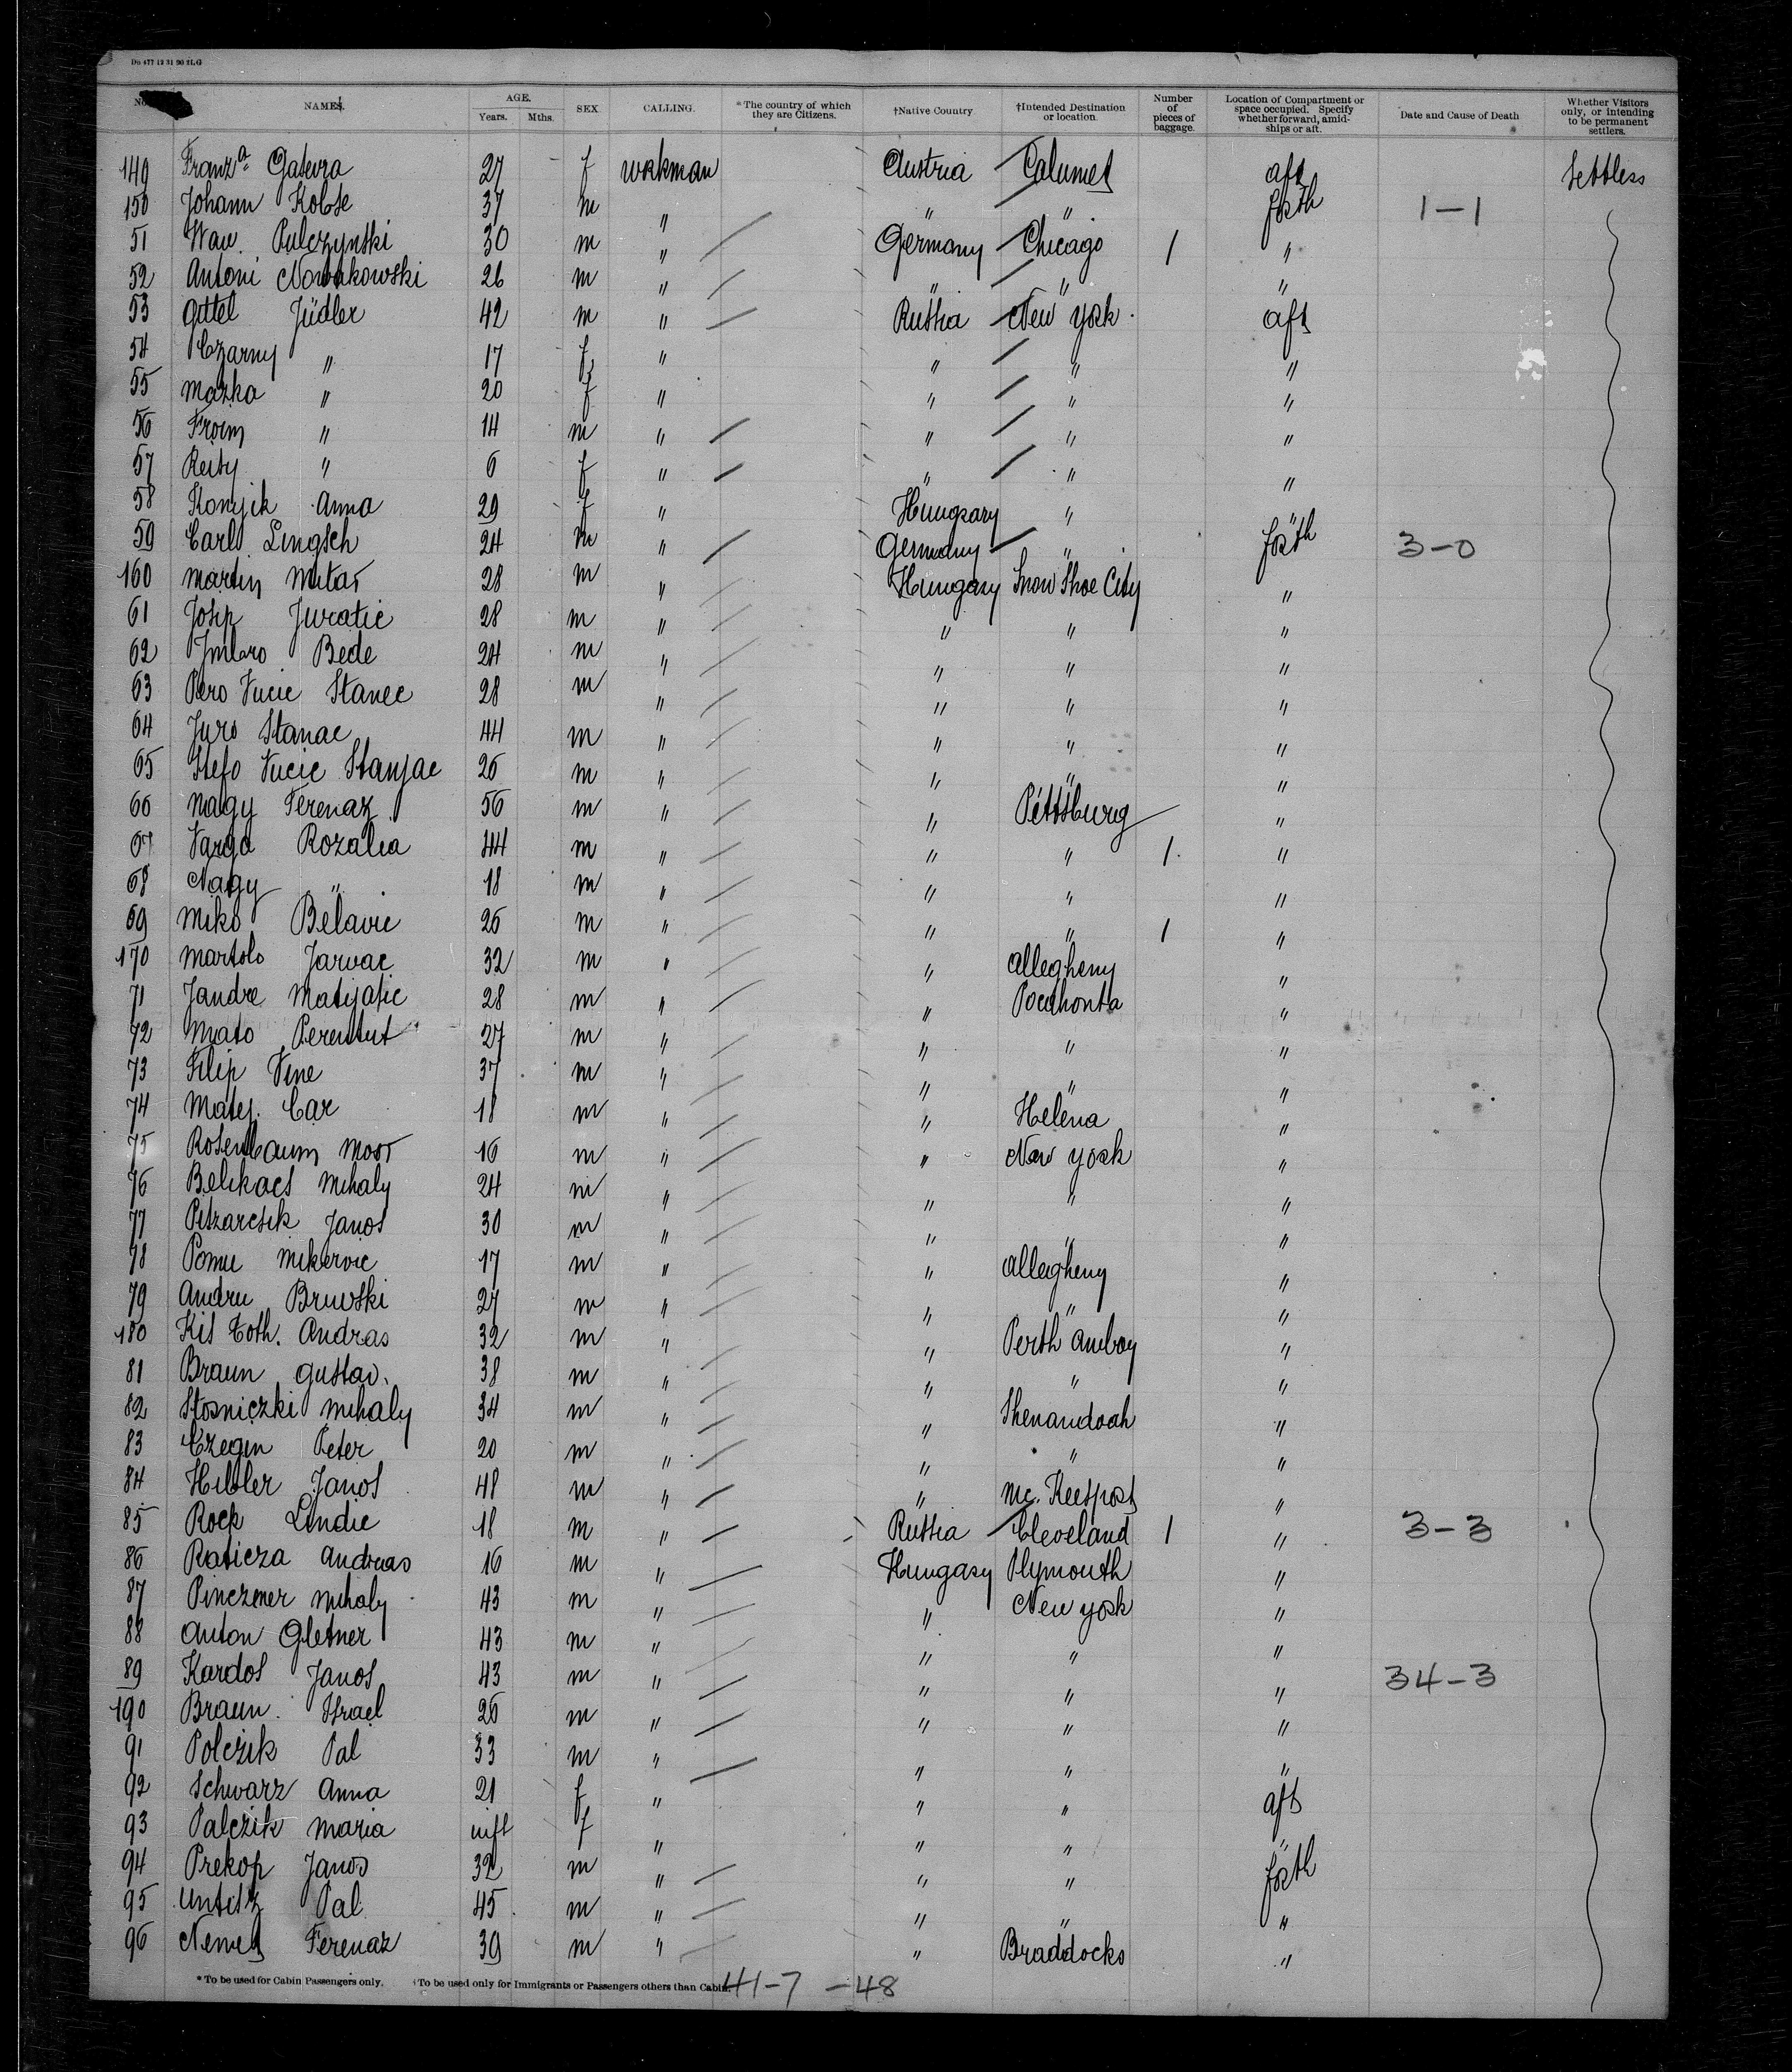 Do 477 12 31 90 1LG
No. NAMES. AGE. Years. Mths. SEX CALLING. *The country of which they are Citizens. †Native Country †Intended Destination or location. Number of pieces of baggage. Location of Compartment or space occupied. Specify whether forward, amidships or aft. Date and Cause of Death Whether Visitors only, or intending to be permanent settlers.
149 Franza 27 f workman Austria Calumet aft settless
150 Johann Kobse 37 m " " " forth 1-1
51 Waw. Pulczynski 30 m " Germany Chicago 1 "
52 Antoni Nowakowski 26 m " " " "
53 Gittel Jüdler 42 m " Russia New York aft
54 Czarny " 17 f " " " "
55 Mazka " 20 f " " " "
56 Froim " 14 m " " " "
57 Reisy " 6 f " " " "
58 Konyik Anna 29 f " Hungary "
59 Carl Lingsch 24 m " Germany " forth 3-0
160 Martin Mutar 28 m " Hungary Snow Shoe City "
61 Josip Juratic 28 m " " " "
62 Imbro Bede 24 m " " " "
63 Pero Vucic Stanec 28 m " " " "
64 Juro Stanac 44 m " " " "
65 Stefo Vucic Stanjac 26 m " " " "
66 Nagy Ferenaz 56 m " " Pittsburg "
67 Varga Rozalia 44 m " " " 1 "
68 Nagy " 18 m " " " "
69 Miko Belavic 26 m " " " 1 "
170 Martolo Jarvac 32 m " " Allegheny "
71 Jandre Matijasic 28 m " " Pocahonta "
72 Mato 27 m " " " "
73 Filip Vine 37 m " " " "
74 Matej. Car 18 m " " Helena "
75 Rosenbaum Moor 16 m " " New York "
76 Belikacs Mihaly 24 m " " " "
77 Piszarcsik Janos 30 m " " " "
78 Pomu Mikervic 17 m " " Allegheny "
79 Andru Bruwski 27 m " " " "
180 Kis Toth. Andras 32 m " " Perth Amboy "
81 Braun Gustav. 38 m " " " "
82 Stosniczki Mihaly 34 m " " Shenandoah "
83 Czegin Peter 20 m " " " "
84 Hibler Janos 48 m " " Mc. Keesport "
85 Roep Lindie 18 m " Russia Cleveland 1 " 3-3
86 Raticza Andreas 16 m " Hungary Plymouth "
87 Pinczmer Mihaly 43 m " " New York "
88 Anton Gletner 43 m " " " "
89 Kardos Janos 43 m " " " " 34-3
190 Braun. Israel 26 m " " " "
91 Polczik Pal 33 m " " " "
92 Schwarz Anna 21 f " " " aft
93 Palczik Maria inft f " " " "
94 Prekop Janos 32 m " " " forth
95 Pal 45 m " " " "
96 Nemes Ferenaz 39 m " " Braddocks "
* To be used for Cabin Passengers only. †To be used only for Immigrants or Passengers others than Cabin. 41-7 -48